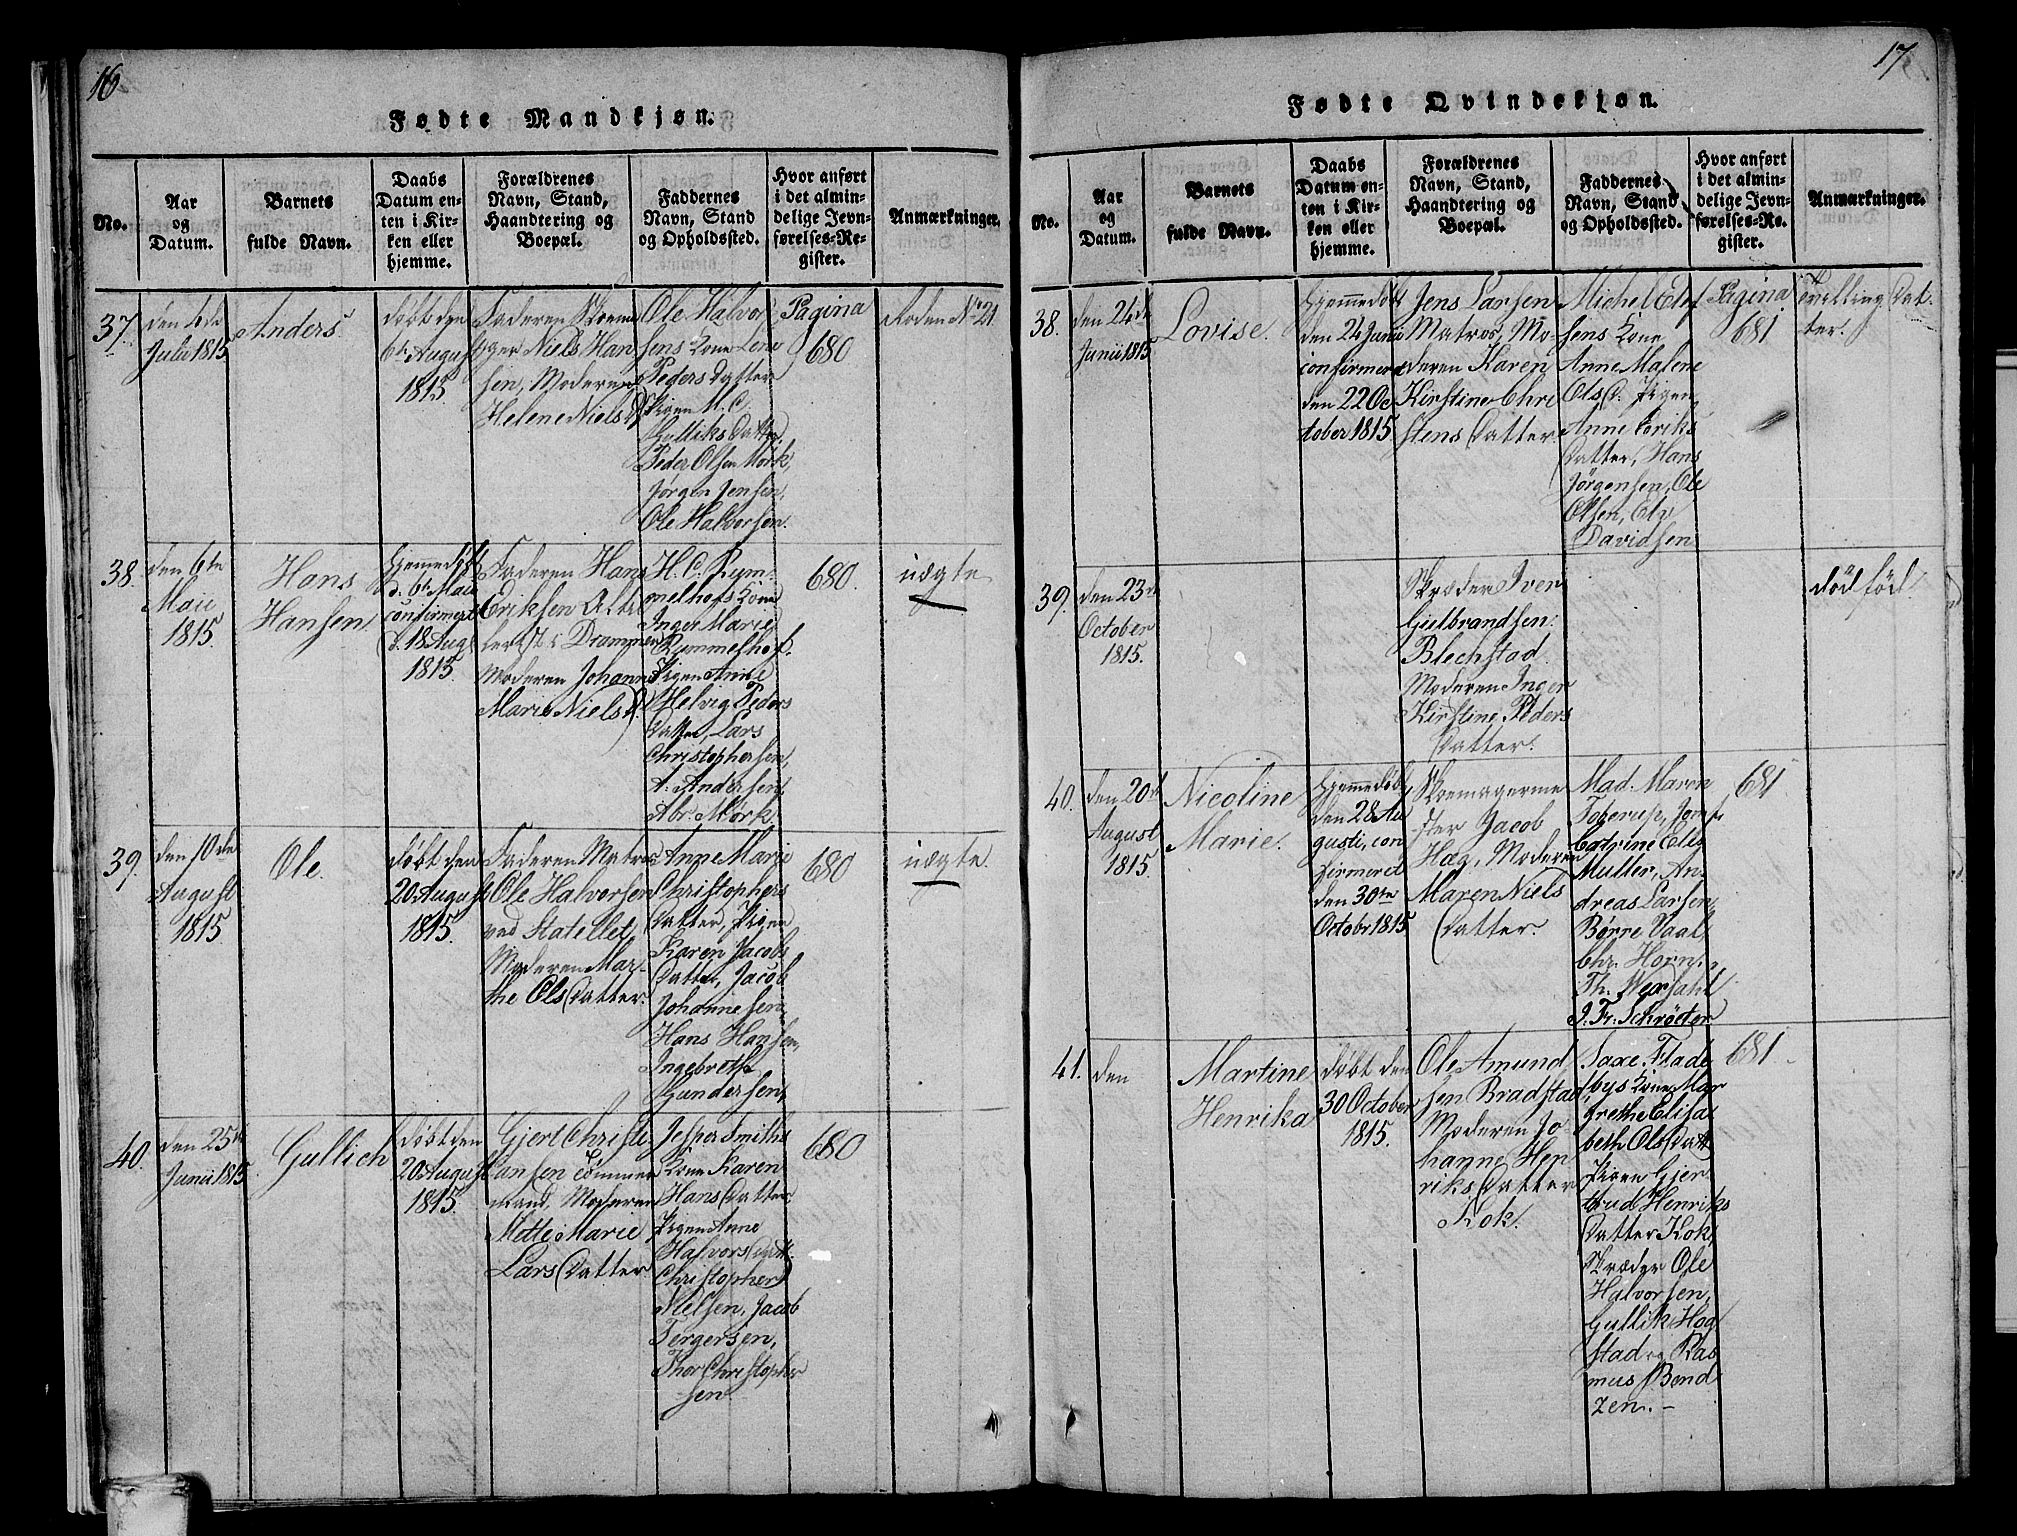 16
Fødte Mandkjøn.
No.
Aar
og
Datum.
Barnets
fulde Navn.
Daabs
Datum en-
ten i Kir-
ken eller
hjemme.
Forældrenes
Navn, Stand,
Haandtering og
Boepæl.
Faddernes
Navn, Stand
og Opholdssted.
Hvor anført
i det almin-
delige Jevn-
førelses-Re-
gister.
Anmærkninger.
37.
Julii 1815
Anders.
døbt den
6te August
1815.
Faderen Skoema
ger Niels Han
sen, Moderen
Helene Niels D.
Ole Halvor
sens Kone Lene
Peders Datter
Pigen M. C.
Gulliks Datter,
Peder Olsen Mörk,
Jørgen Jensen,
Ole Halvorsen.
Pagina
680
No 21
38.
den 6te
Maii
1815.
Hans
Hansen.
Hjemmedøbt
d. 6te Maii
confirmert
d. 18 Aug
1815.
Faderen Hans
Eriksen
Drammen
Moderen Johanne
Marie Niels D.
H. C. Rym-
melhofs Kone
Inger Marie
Rymmelhof.
Pigen Anne
Helvig Peders
Datter, Lars
Christophersen,
A. Andersen,
Abr. Mørk.
680.
uægte
39.
den 10de
August
1815
Ole.
døbt den
20 August
1815.
Faderen Matros
Ole Halvorsen
ved Statellet,
Moderen Mar-
the Ols Datter.
Anne Marie
Christophers
Datter, Pigen
Karen Jacobs
Datter, Jacob
Johannesen,
Hans Hansen,
Ingebreth
Gundersen,
680
uægte.
40.
den 25de
Junii 1815.
Gullich
døbt den
20 August
1815.
Gjert Christi-
ansen Tømmer
mand, Moderen
Mette Marie
Lars Datter
Jesper Smiths
Kone Karen
Hans Datter
Pigen Anne
Halvors Datt.
Christopher
Nielsen, Jacob
Tergersen,
Thor Christopher
sen
680
17
Fødte Qvindekjøn.
No.
Aar
og
Datum.
Barnets
fulde Navn.
Daabs
Datum en-
ten i Kir-
ken eller
hjemme.
Forældrenes
Navn, Stand,
Haandtering og
Boepæl.
Faddernes
Navn, Stand
og Opholdssted.
Hvor anført
i det almin-
delige Jevn-
førelses-Re-
gister.
Anmærkninger.
38.
den 24de
Junii 1815
Lovise.
Hjemmedøbt
den 24 Junii
confirmeret
den 22 Oc
tober 1815
Jens Larsen
Matros, Mo-
deren Karen
Kirstine Chri
stens Datter.
Michel Elef
sens Kone
Anne Malene
Ols D. Pigen
Anne Eriks
Datter, Hans
Jørgensen, Ole
Olsen, Ely
Davidsen
Pagina
681
Tvilling Dat
ter.
39.
den 23de
October
1815.
Skræder Iver
Gulbrandsen
Blechstad
Moderen Inger
Kirstine Peders
Datter.
död föd.
40.
den 20de
August
1815.
Nicoline
Marie.
Hjemmedøbt
den 28 Au
gusti, con
firmeret
den 30te
Octobr 1815
Skoemagerme
ster Jacob
Hag, Moderen
Maren Niels
Datter.
Mad. Maren
Toperup, Jomf.
Catrine Elly
Muller, An
dreas Larsen,
Børre Vaal,
Chr. Horn,
J. Fr. Schrøeter
681
41.
den
Martine
Henrika
døbt den
30 October
1815.
Ole Amund
sen Bradstad
Moderen Jo-
hanne Hen
riks Datter
Kok.
Saxe Flade
bys Kone Mar
grethe Elisa
beth Ols Datt
Pigen Gjer
trud Henriks
Datter Kok,
Skræder Ole
Halvorsen,
Gullik Hog
stad og Ras
mus Bend
zen. -
681